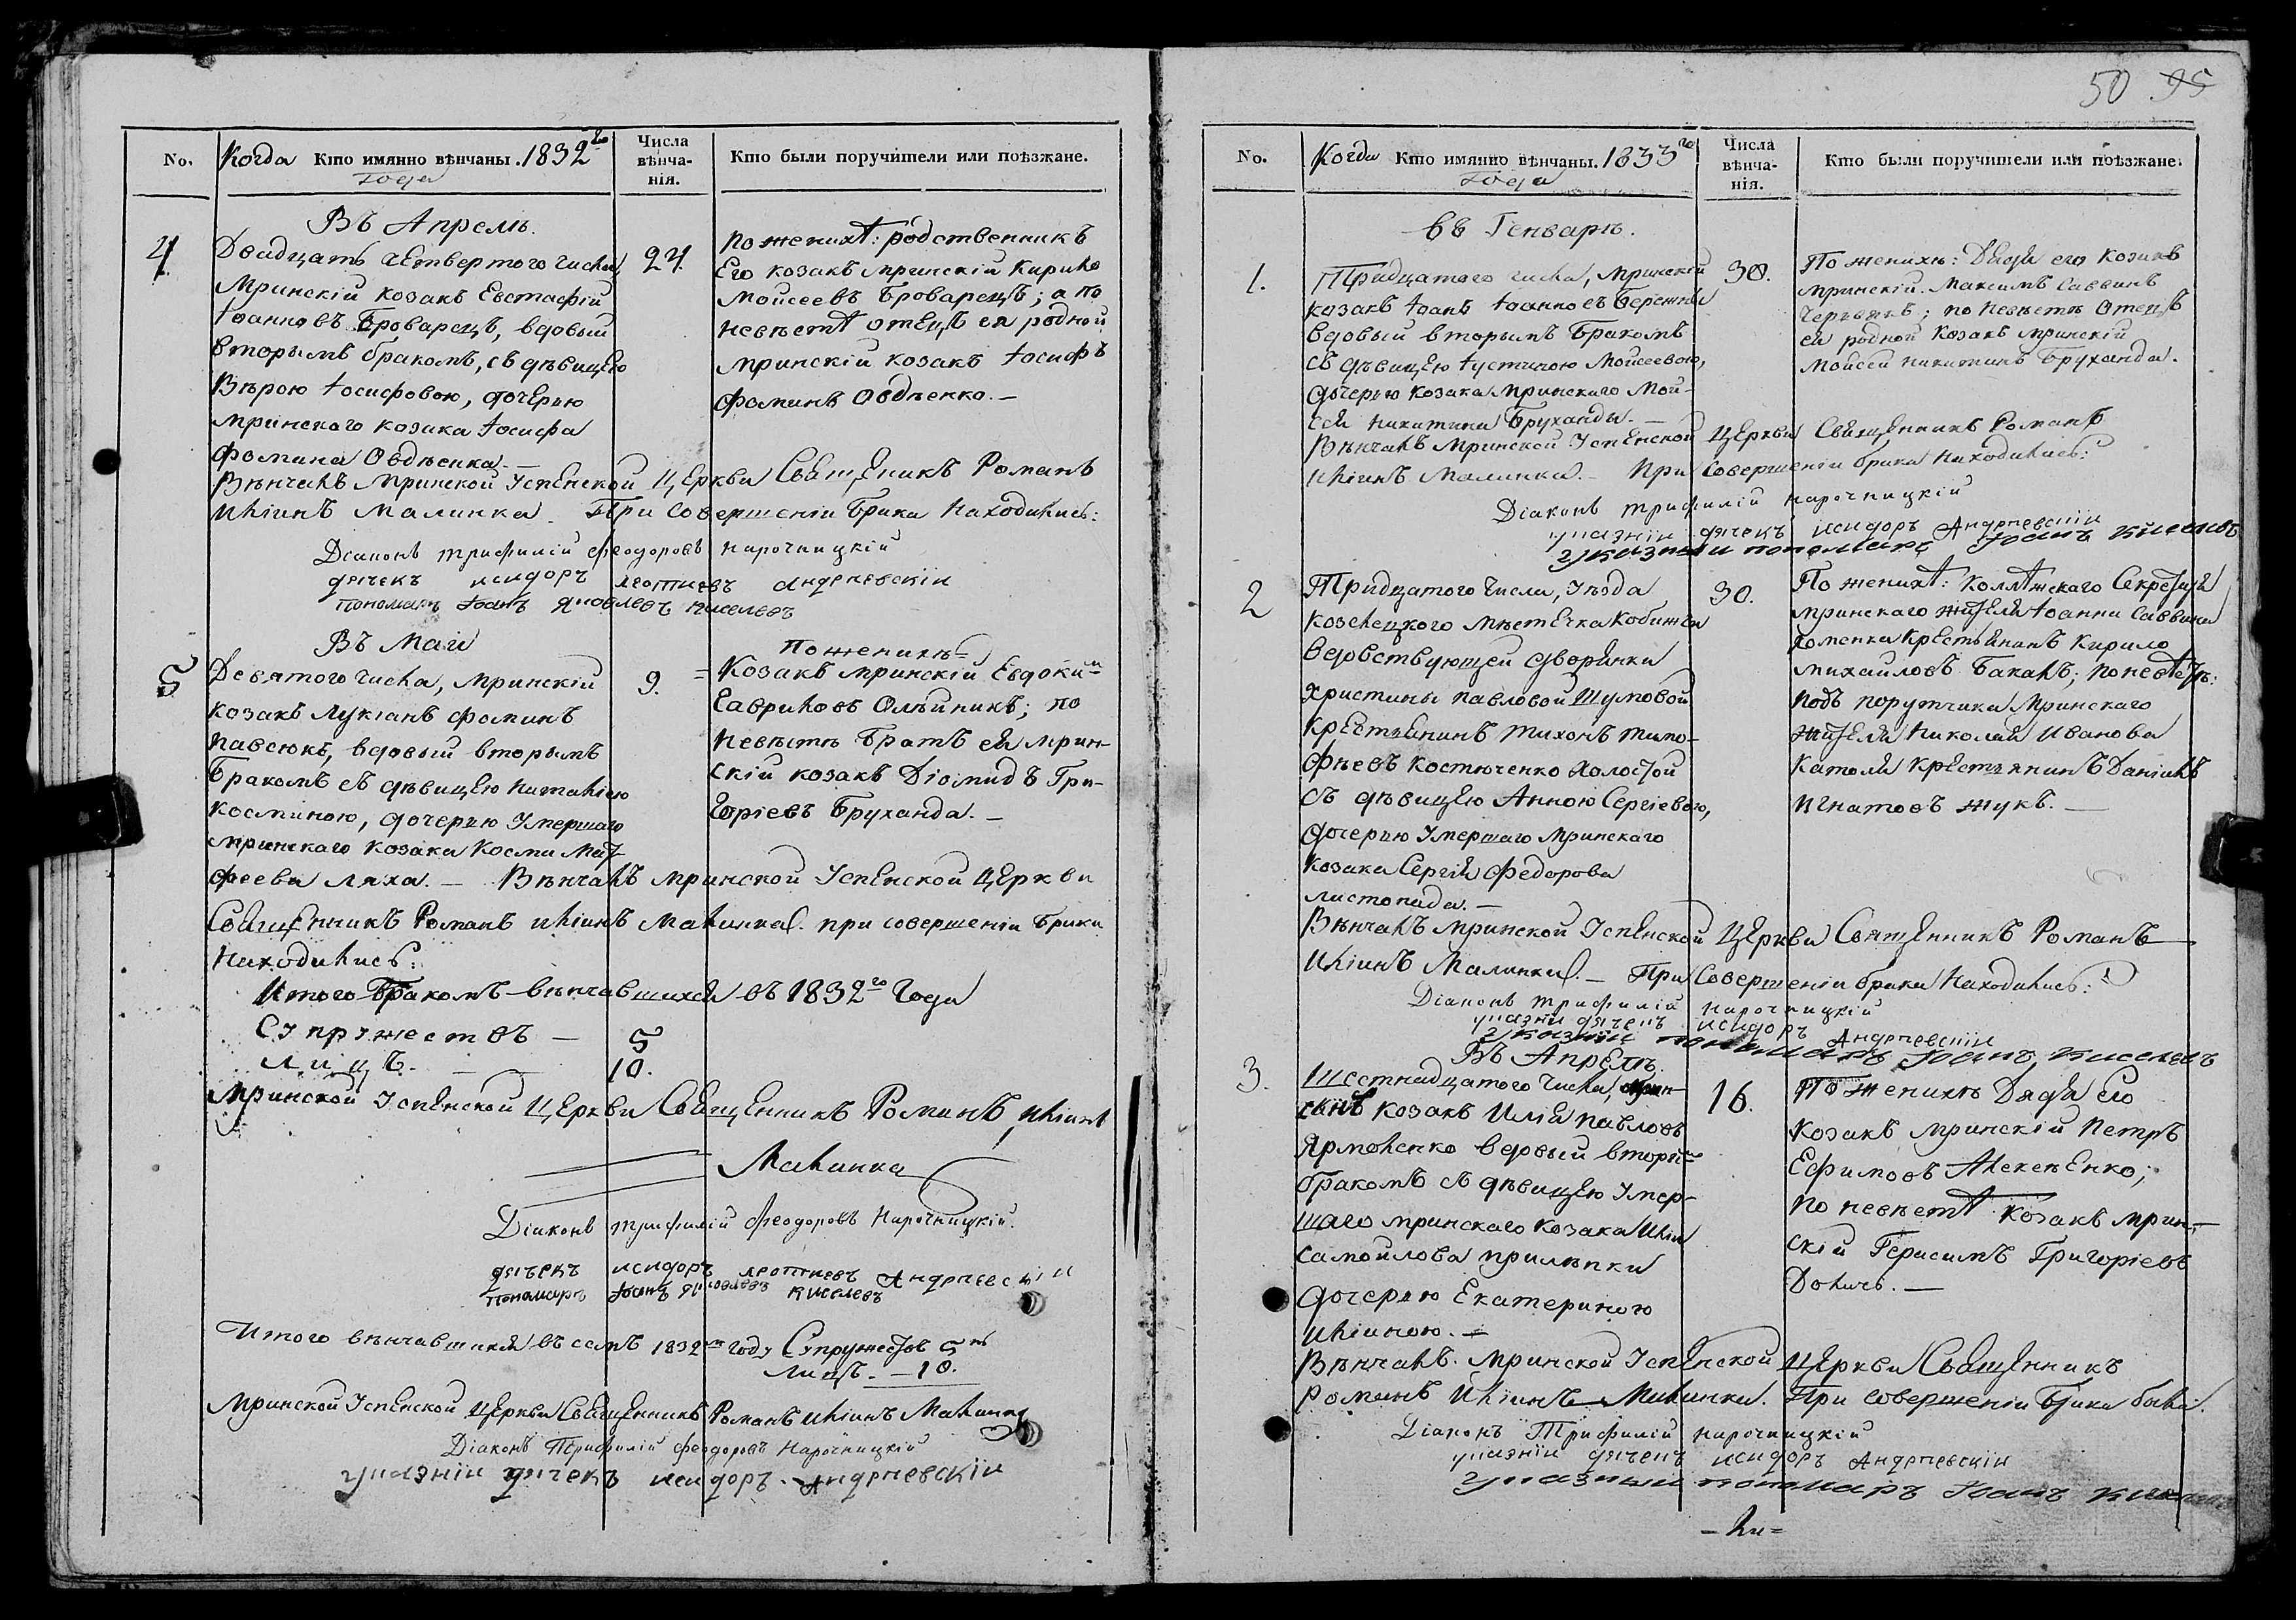 50 95
No.
Когда Кто имянно вѣнчаны. 1832го
Года
Числа
вѣнча-
нія.
Кто были поручители или поѣзжане.
Въ Апрелѣ.
4.
Двадцать четвертого числа,
Мринскій козакъ Евстафій
Іоанновъ Броварецъ, вдовый
вторымъ бракомъ, съ дѣвицею
Вѣрою Іосифовою, дочерью
мринского козака Іосифа
Фомина Овдѣенка. —
24.
по женихѣ: родственникъ
Его козакъ мринскій Кирило
Моисеевъ Броварецъ; а по
невѣстѣ отецъ ея родной
мринскій козакъ Іосифъ
Фоминъ Овдѣенко. —
Вѣнчалъ Мринской Успенской Церкви Священникъ Романъ
Иліинъ Малинка. При Совершеніи Брака Находились:
Діаконъ Трифилій Феодоровъ Нарочницкій
дячекъ исидоръ леонтиевъ Андрпевскіи
Пономарь Іоанъ Яковлевъ Киселевъ
Въ Маіи
5
Девятого числа, Мринскій
козакъ Лукіанъ Фоминъ
Павсюкъ, вдовый вторымъ
Бракомъ съ дѣвицею Наталіею
Косминою, дочерью Умершаго
мринскаго козака Космы Мат-
феева Ляха. — Вѣнчалъ Мринской Успенской Церкви
9.
По женихѣ =
= Козакъ мринскій Евдокимъ
Гавриловъ Олѣйникъ; по
невѣстѣ Братъ ея мрин-
скій козакъ Діомидъ Гри-
горіевъ Бруханда. —
Священникъ Романъ Иліинъ Малинка. при совершеніи Брака
Находились:
Итого Бракомъ вѣнчавшихся въ 1832го Года
Супружествъ — 5
Лицъ. — — 10.
Мринской Успенской Церкви Священникъ Романъ Иліинъ
Малинка
Діаконъ Трифилій Феодоровъ Нарочницкій.
дячекъ исидоръ леонтиевъ Андрпевскіи
Пономарь Іоанъ Яковлевъ Киселевъ
Итого вѣнчавшихся въ семъ 1832мъ году Супружествъ 5ть
Лицъ. — 10.
Мринской Успенской Церкви Священникъ Романъ Иліинъ Малинка
Діаконъ Трифилій Феодоровъ Нарочницкій
указніи дячекъ исидоръ Андрпевскіи
No.
Когда Кто имянно вѣнчаны. 1833го
Года
Числа
вѣнча-
нія.
Кто были поручители или поѣзжане.
въ Генварѣ.
1.
Тридцатого числа, мринскій
козакъ Іоанъ Іоанновъ
вдовый вторымъ Бракомъ
съ дѣвицею Іустиною Моисеевою,
дочерью козака Мринскаго Мои-
сея Никитина Бруханды. —
30.
По женихѣ: Дядя его козакъ
мринскій Максимъ Саввинъ
по невѣстѣ Отецъ
ея родной козакъ мринскій
Моисей Никитинъ Бруханда.
Вѣнчалъ Мринской Успенской Церкви Священникъ Романъ
Иліинъ Малинка. — При Совершеніи брака Находились:
Діаконъ Трифилій Нарочницкій
указніи дячекъ исидоръ Андрпевскіи
указныи пономарь Іоанъ Киселевъ
2
Тридцатого Числа, Уѣзда
Козелецкого мѣстечка Кобижчи
вдовствующей дворянки
Христины Павловой Шумовой
крестьянинъ Тихонъ Тимо-
фѣевъ Костюченко Холостой
съ дѣвицею Анною Сергіевою,
дочерью Умершаго мринскаго
козака Сергія Федорова
листопада. —
30.
По женихѣ: коллѣжскаго Секретаря
мринскаго жителя Іоанна Саввина
Хоменка крестьянинъ Кирило
Михаиловъ Бакалъ; по невѣстѣ:
подъ порутчика Мринскаго
жителя Николая Иванова
Католя крестьянинъ Даніилъ
Игнатовъ Жукъ. —
Вѣнчалъ Мринской Успенской Церкви Священникъ Романъ
Иліинъ Малинка. — При Совершеніи брака Находились:
Діаконъ Трифилій Нарочницкій
указніи дячекъ исидоръ Андрпевскіи
указніи пономарь Іоанъ Киселевъ
Въ Апрелѣ.
3.
Шестнадцатого числа, мрин-
скій козакъ Илія Павловъ
Ярмоленко вдовый вторымъ
бракомъ съ дѣвицею Умер-
шаго мринскаго козака Иліи
Самойлова прилѣпки
дочерью Екатериною
Иліиною. —
16.
По женихѣ Дядя его
козакъ мринскій Петръ
Ефимовъ Алексѣенко;
по невѣстѣ козакъ мрин-
скій Герасимъ Григоріевъ
—
Вѣнчалъ Мринской Успенской Церкви Священникъ
Романъ Иліинъ Малинка. При совершеніи Брака были.
Діаконъ Трифилій Нарочницкій
указніи дячекъ исидоръ Андрпевскіи
указныи пономарь Іоанъ Киселевъ